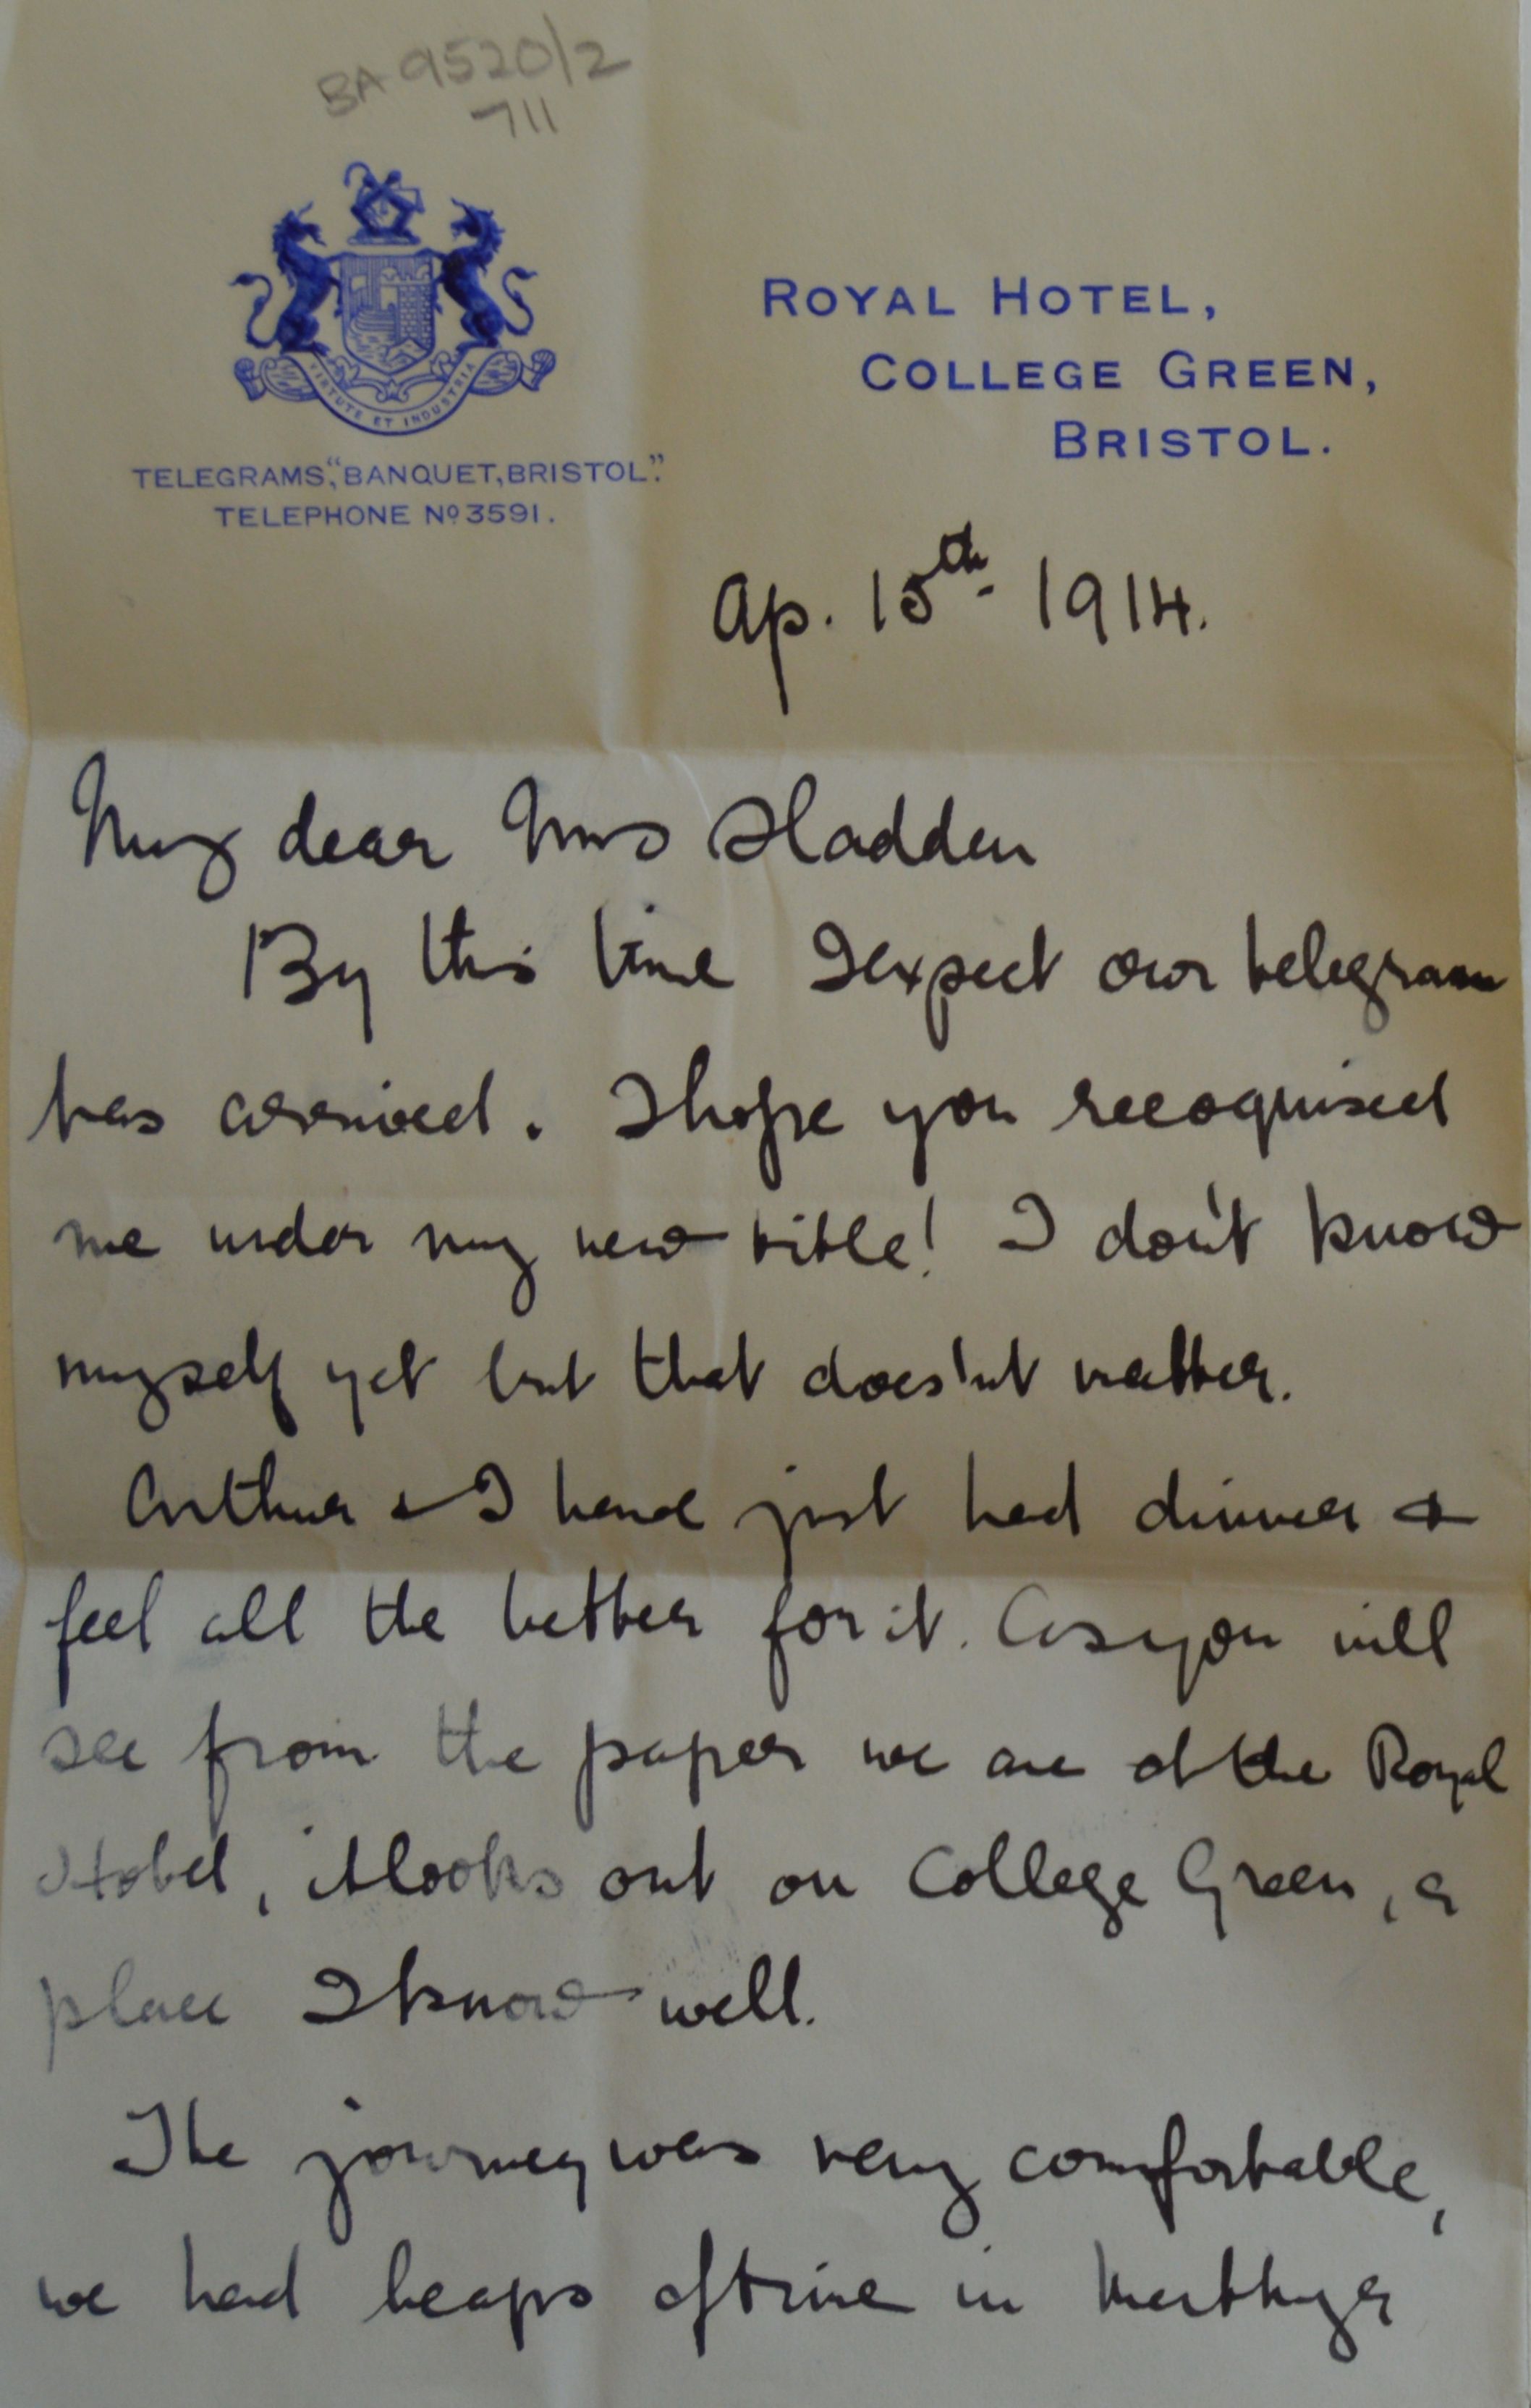 BA 9520/2
711
VIRTUTE ET INDUSTRIA
TELEGRAMS, "BANQUET, BRISTOL".
TELEPHONE No 3591.
ROYAL HOTEL,
COLLEGE GREEN,
BRISTOL.
Ap. 15th. 1914.
My dear Mrs Sladden
By this time I expect our telegram
has arrived. I hope you recognised
me under my new title! I don't know
myself yet but that does'nt matter.
Arthur & I have just had dinner &
feel all the better for it. As you will
see from the paper we are at the Royal
Hotel, it looks out on College Green, a
place I know well.
The journey was very comfortable,
we had heaps of time in Merthyr